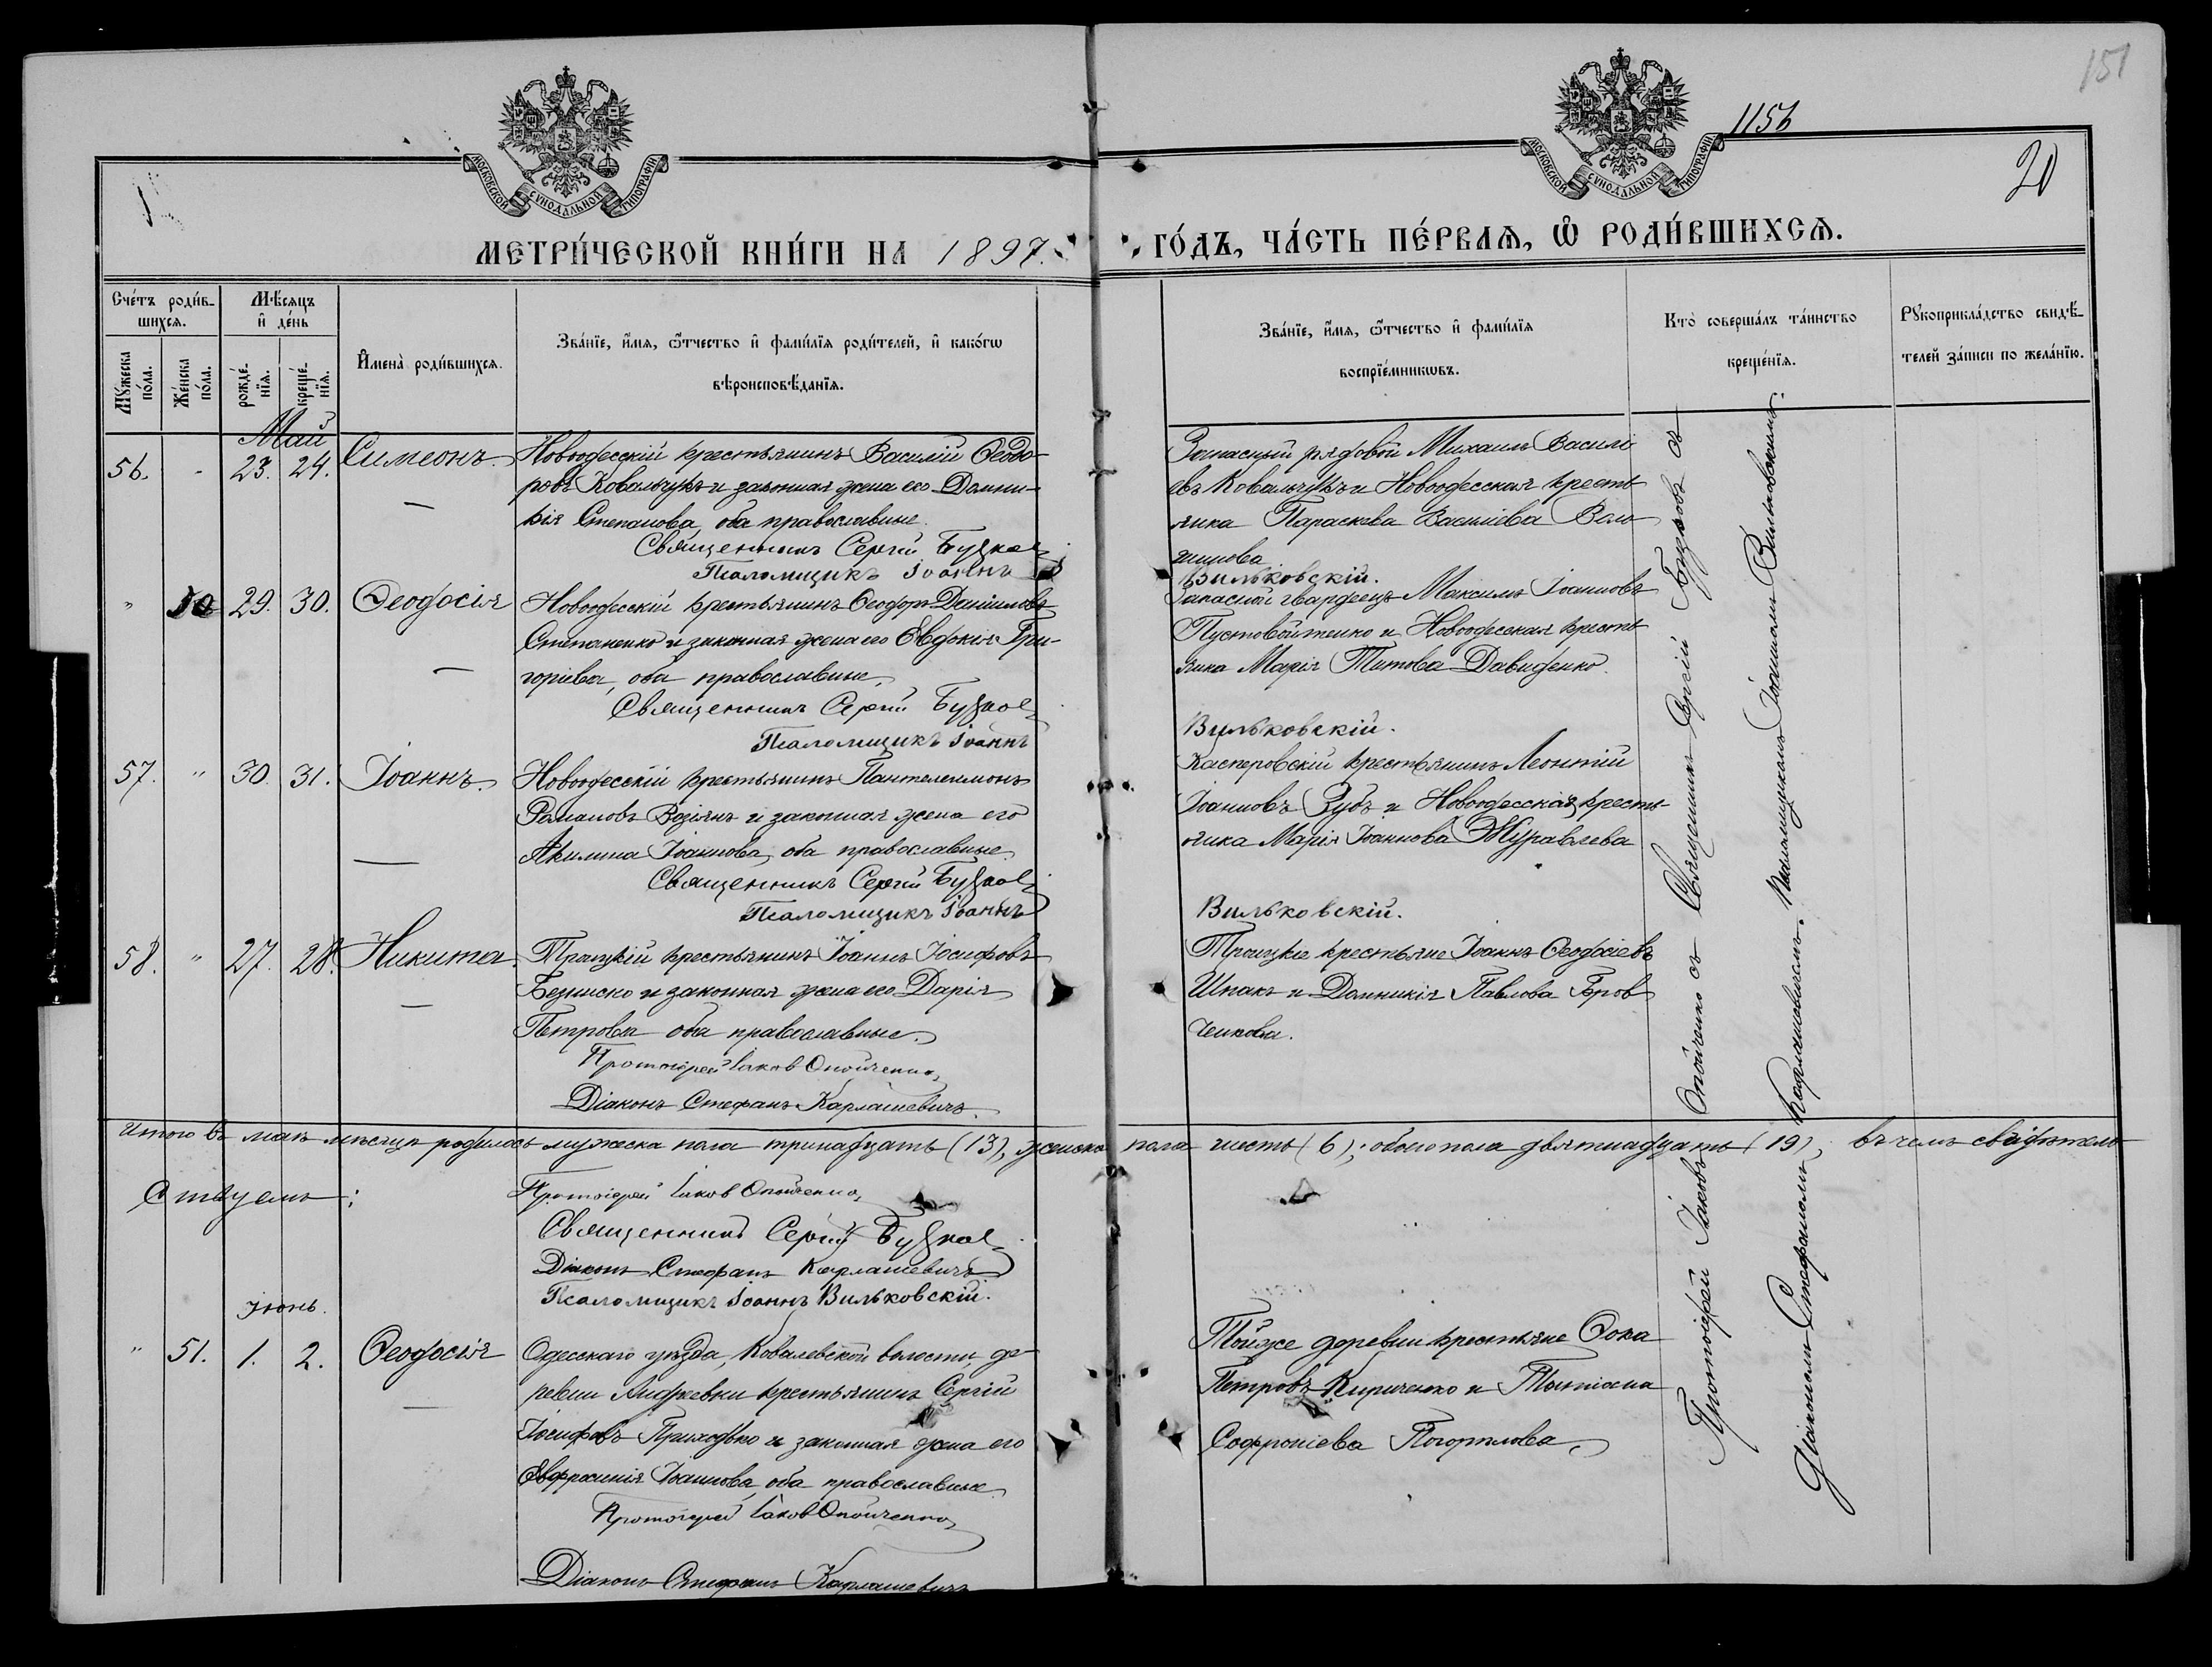 151
1156
20
МОСКОВСКОЙ СѴНОДАЛЬНОЙ ТИПОГРАФІИ
МОСКОВСКОЙ СѴНОДАЛЬНОЙ ТИПОГРАФІИ
МЕТРИ́ЧЕСКОЙ КНИ́ГИ НА 1897. ГО́ДЪ, ЧА́СТЬ ПЕ́РВАЯ, Ѡ҆ РОДИ́ВШИХСЯ.
Сче́тъ роди́в-
шихся.
Мꙋ́жеска по́ла.
Же́нска по́ла.
Мѣ́сяцъ и҆ де́нь
рожде́нїя.
креще́нїя.
И҆мена̀ роди́вшихся.
Зва́нїе, и҆́мя, ѻ҆́тчество и҆ фами́лїя роди́телей, и҆ како́гѡ
вѣроисповѣ́данїя.
Зва́нїе, и҆́мя, ѻ҆́тчество и҆ фами́лїя
воспрїе́мникѡвъ.
Кто̀ соверша́лъ та́инство
креще́нїя.
Рꙋкоприкла́дство свидѣ́-
телей за́писи по жела́нїю.
Май
56. - 23. 24. Симеонъ.
Новоодесскій крестьянинъ Василій Ѳеодо-
ровъ Ковальчукъ и законная жена его Домни-
кія Степанова, оба православные.
Священникъ Сергій
Псаломщикъ Іоаннъ
Запасный рядовой Михаилъ Василі
евъ Ковальчукъ и Новоодесская кресть
янка Параскева Василіева Воло
шинова
Вильковскій.
" 50 29. 30. Ѳеодосія
Новоодесскій крестьянинъ Ѳеодоръ Даніиловъ
Степаненко и законная жена его Евдокія Гри-
горіева, оба православные.
Священникъ Сергій
Псаломщикъ Іоаннъ
Запасной гвардеецъ Максимъ Іоанновъ
Пустовойтенко и Новоодесская кресть
янка Марія Титова Давиденко.
Вильковскій.
57. " 30. 31. Іоаннъ.
Новоодесскій крестьянинъ Пантелеимонъ
Романовъ Возіянъ и законная жена его
Акилина Іоаннова, оба православные.
Священникъ Сергій
Псаломщикъ Іоаннъ
Касперовскій крестьянинъ Леонтій
Іоанновъ Зубъ и Новоодесская кресть
янка Марія Іоаннова Журавлева
Вильковскій.
58. " 27. 28. Никита.
Троицкій крестьянинъ Іоаннъ Іосифовъ
и законная жена его Дарія
Петрова оба православные.
Протоіерей Іаковъ Опойченко
Діаконъ Стефанъ Карлашевичъ.
Троицкіе крестьяне Іоаннъ Ѳеодосіевъ
Шпакъ и Домникія Павлова
ченкова.
Итого въ маѣ мѣсяцѣ родилось мужеска пола тринадцать (13), женска пола шесть (6); обоего пола девятнадцать (19), въ чемъ свидѣтель-
ствуемъ:
Протоіерей Іаковъ Опойченко
Священникъ Сергій
Діаконъ Стефанъ Карлашевичъ
Псаломщикъ Іоаннъ Вильковскій.
Іюнь.
" 51. 1. 2. Ѳеодосія
Одесскаго уѣзда, Ковалевской волости, де-
ревни Андреевки крестьянинъ Сергій
Іосифовъ Приходько и законная жена его
Евфросинія Іоаннова, оба православные
Протоіерей Іаковъ Опойченко
Діаконъ Стефанъ Карлашевичъ
Той же деревни крестьяне Ѳока
Петровъ Кириченко и Татіана
Софроніева Погорѣлова.
Протоіерей Іаковъ Опойченко съ Священникъ Сергій съ
Діакономъ Стефаномъ Карлашевичемъ. Псаломщикомъ Іоанномъ Вильковскимъ.